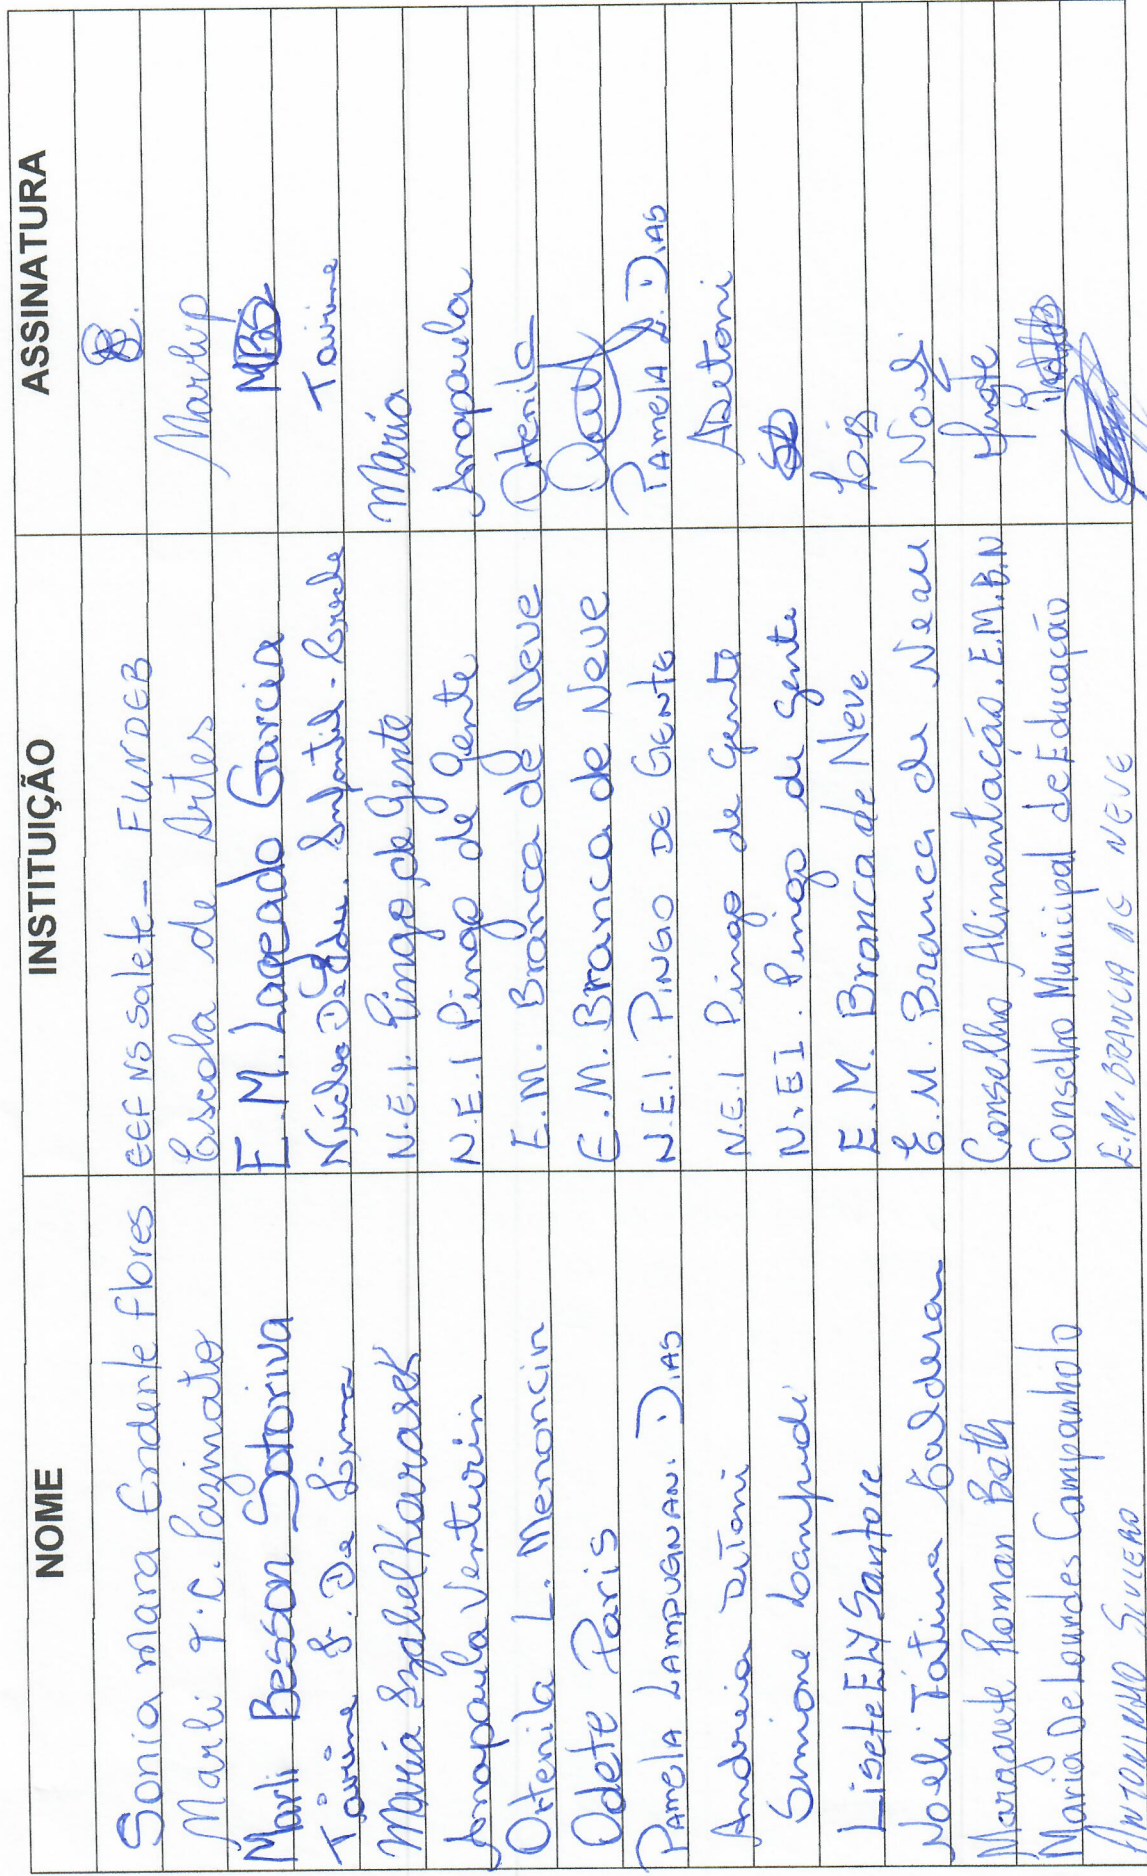 NOME INSTITUIÇÃO ASSINATURA
Sonia Mara Enderle Flores EEF NS Salete - FUNDEB
Marli T.C. Pazinato Escola de Artes Marlip
Marli Besson Sotoriva E.M. Lageado Garcia MBS
Tairine De Lima Núcleo De Edu. Infantil - Creche Tairine
Maria Izabel Karasek N.E.I. Pingo de Gente Maria
Anapaula Venturin N.E.I Pingo de Gente Anapaula
Ortenila L. Menoncin E.M. Branca de Neve Ortenila
Odete Paris E.M. Branca de Neve
PAMELA LAMPUGNANI. DIAS N.E.I. PINGO DE GENTE PAMELA L. DIAS
Andreia DeToni N.E.I Pingo de Gente ADetoni
Simone N.EI. Pingo de Gente
Lisete Santore E.M. Branca de Neve Lis
Noeli Fátima Caldera E.M. Branca de Neve
Margarete Roman Conselho Alimentação. E.M.B.N
Maria De Lourdes Campanholo Conselho Municipal de Educação
SIVIERO E.M. BRANCA DE NEVE